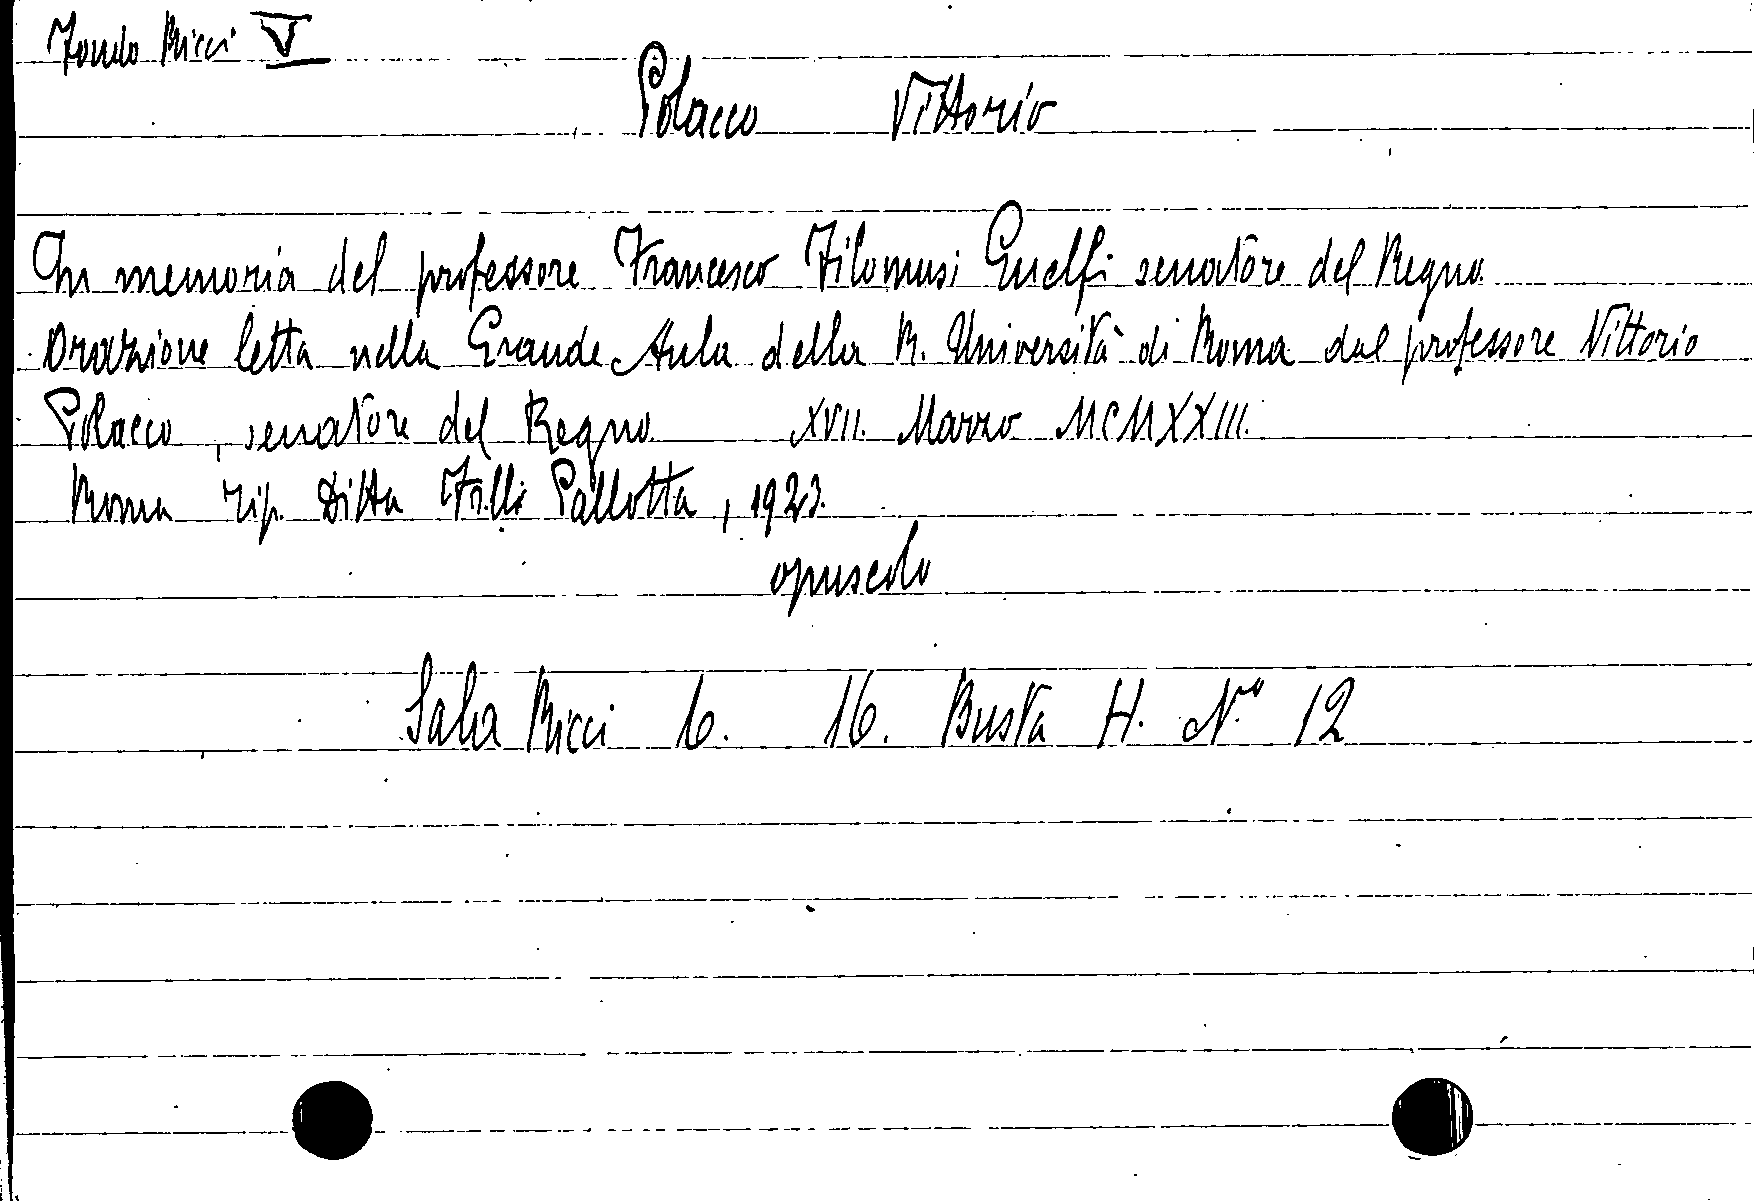 Fondo Ricci V
Polacco Vittorio
In memoria del professore Francesco Filomusi Guelfi senatore del Regno
Orazione letta nella Grande Aula della R. Università di Roma dal professore Vittorio
Polacco, senatore del Regno XVII. Marzo MCMXXIII.
Roma Tip. Ditta F.lli Pallotta, 1923.
opuscolo
Sala Ricci 6. 16. Busta H. N.º 12